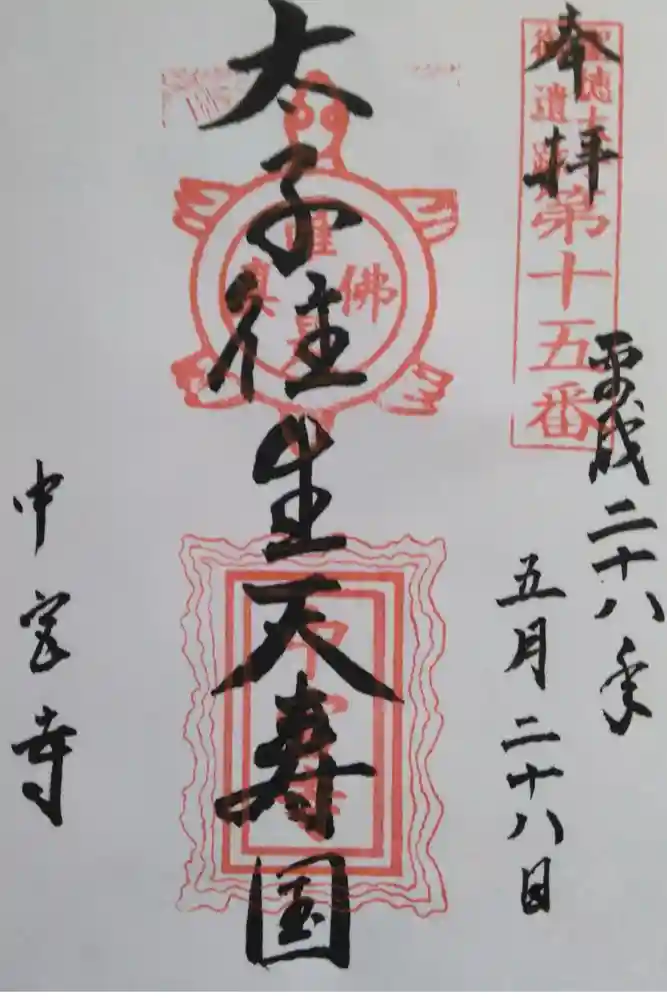 奉拝
聖徳太子
御遺跡
第十五番
平成二十八年
五月二十八日
太子往生天寿国
唯佛是真
中宮寺
中宮寺